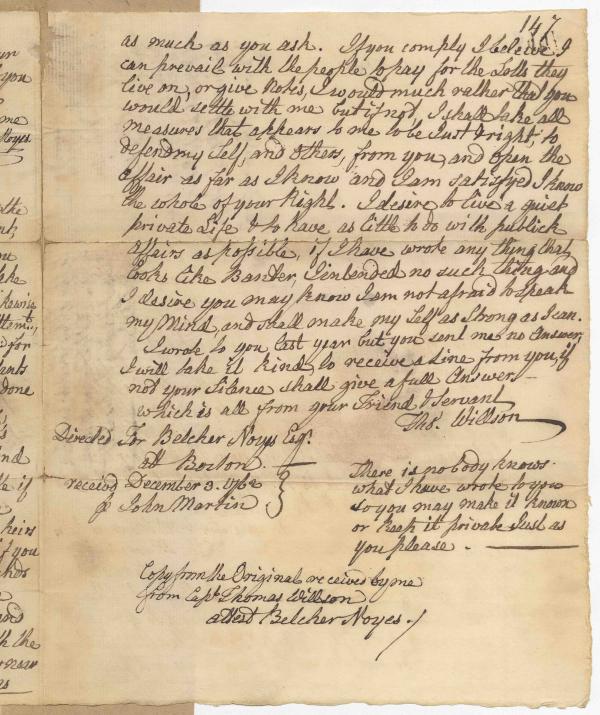 147
as much as you ask. If you comply I beleive I
can prevail with the people to pay for the Lotts they
live on, or give Notes, I would much rather that you
would settle with me but if not, I shall take all
measures that appears to me to be Just & right, to
defend my self, and others, from you, and open the
affair as far as I know and I am satisfyed I know
the whole of your Right. I desire to live a quiet
private Life & to have as little to do with publick
affairs as possible, if I have wrote any thing that
looks like Banter, I intended no such thing and
I desire you may know I am not afraid to speak
my Mind, and shall make my self as strong as I can.
I wrote to you last year but you sent me no Answer,
I will take it kind, to receive a Line from you, if
not your Silence shall give a full Answer —
which is all from your Friend & Servant
Thos. Willson
Directed For Belcher Noyes Esqr.
att Boston. —
received December 3. 1762
pr John Martin
There is nobody knows
what I have wrote to you
so you may make it known
or keep it private Just as
you please. —
Copy from the Original received by me
from Capt. Thomas Willson
attest Belcher Noyes.
you
me
Noyes.
the
you
ake
ikewise
ttem
for
ants
done
nd
le if
heirs
if you
nds
and
th the